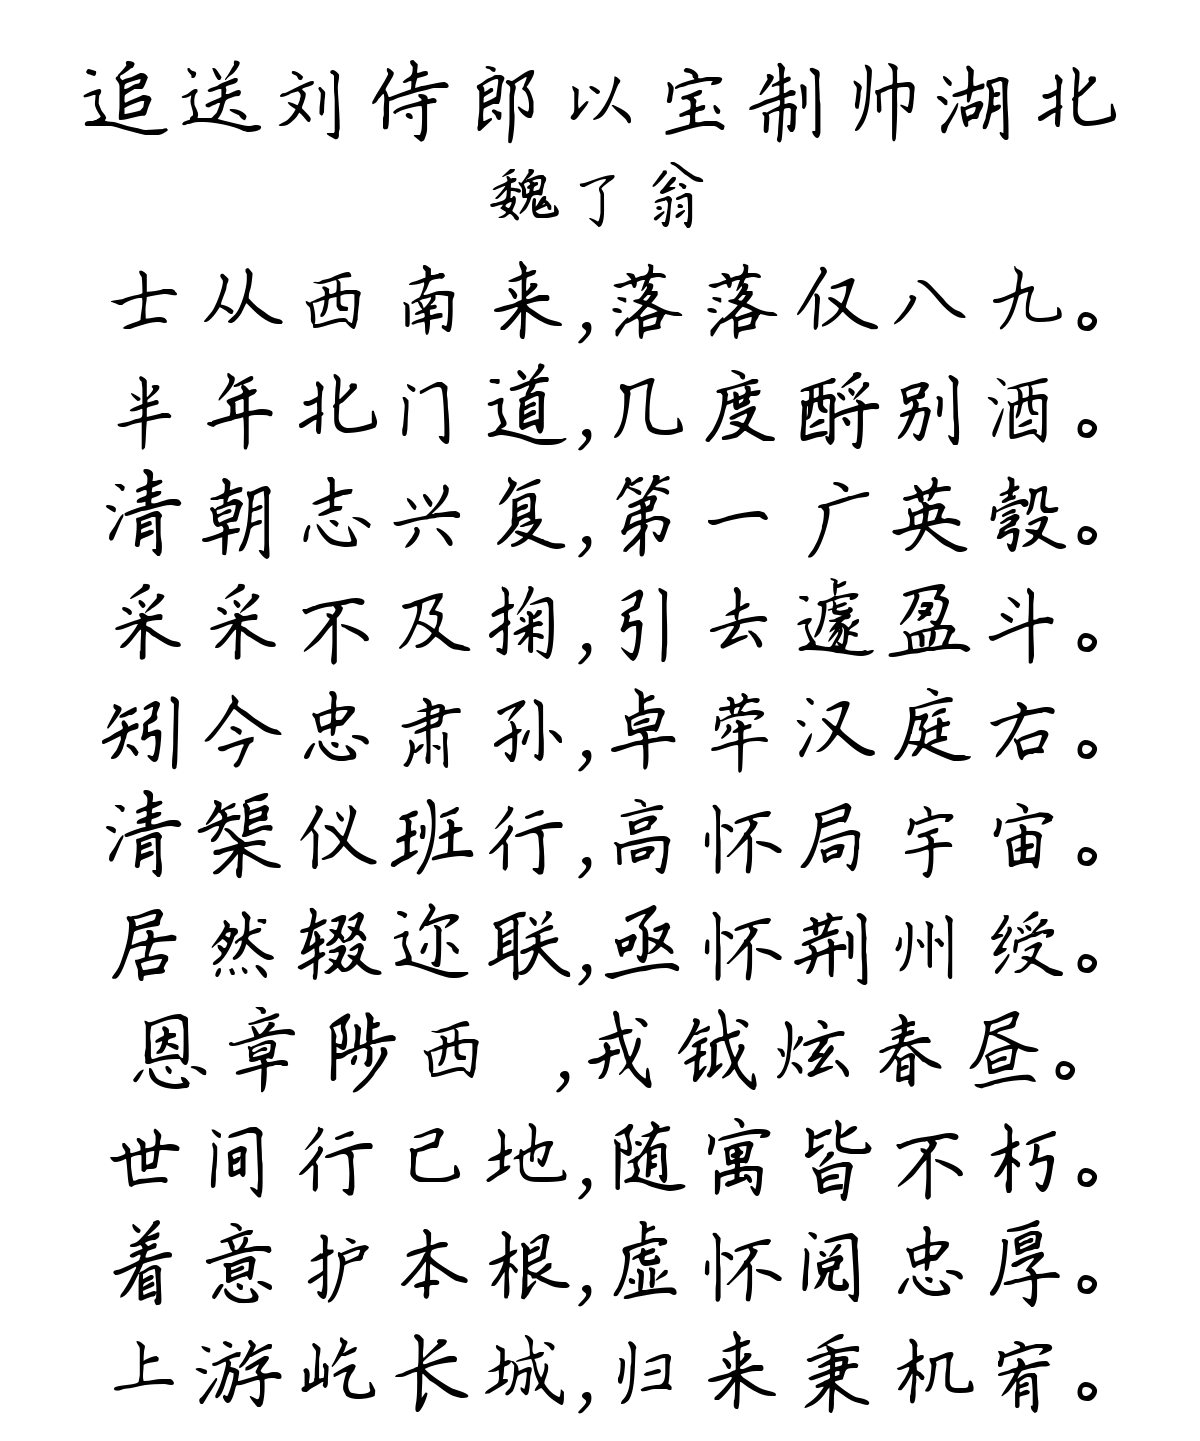 追送刘侍郎以宝制帅湖北
魏了翁
士从西南来,落落仅八九。
半年北门道,几度酹别酒。
清朝志兴复,第一广英彀。
采采不及掬,引去遽盈斗。
矧今忠肃孙,卓荦汉庭右。
清榘仪班行,高怀局宇宙。
居然辍迩联,亟怀荆州绶。
恩章陟西 ,戎钺炫春昼。
世间行己地,随寓皆不朽。
着意护本根,虚怀阅忠厚。
上游屹长城,归来秉机宥。